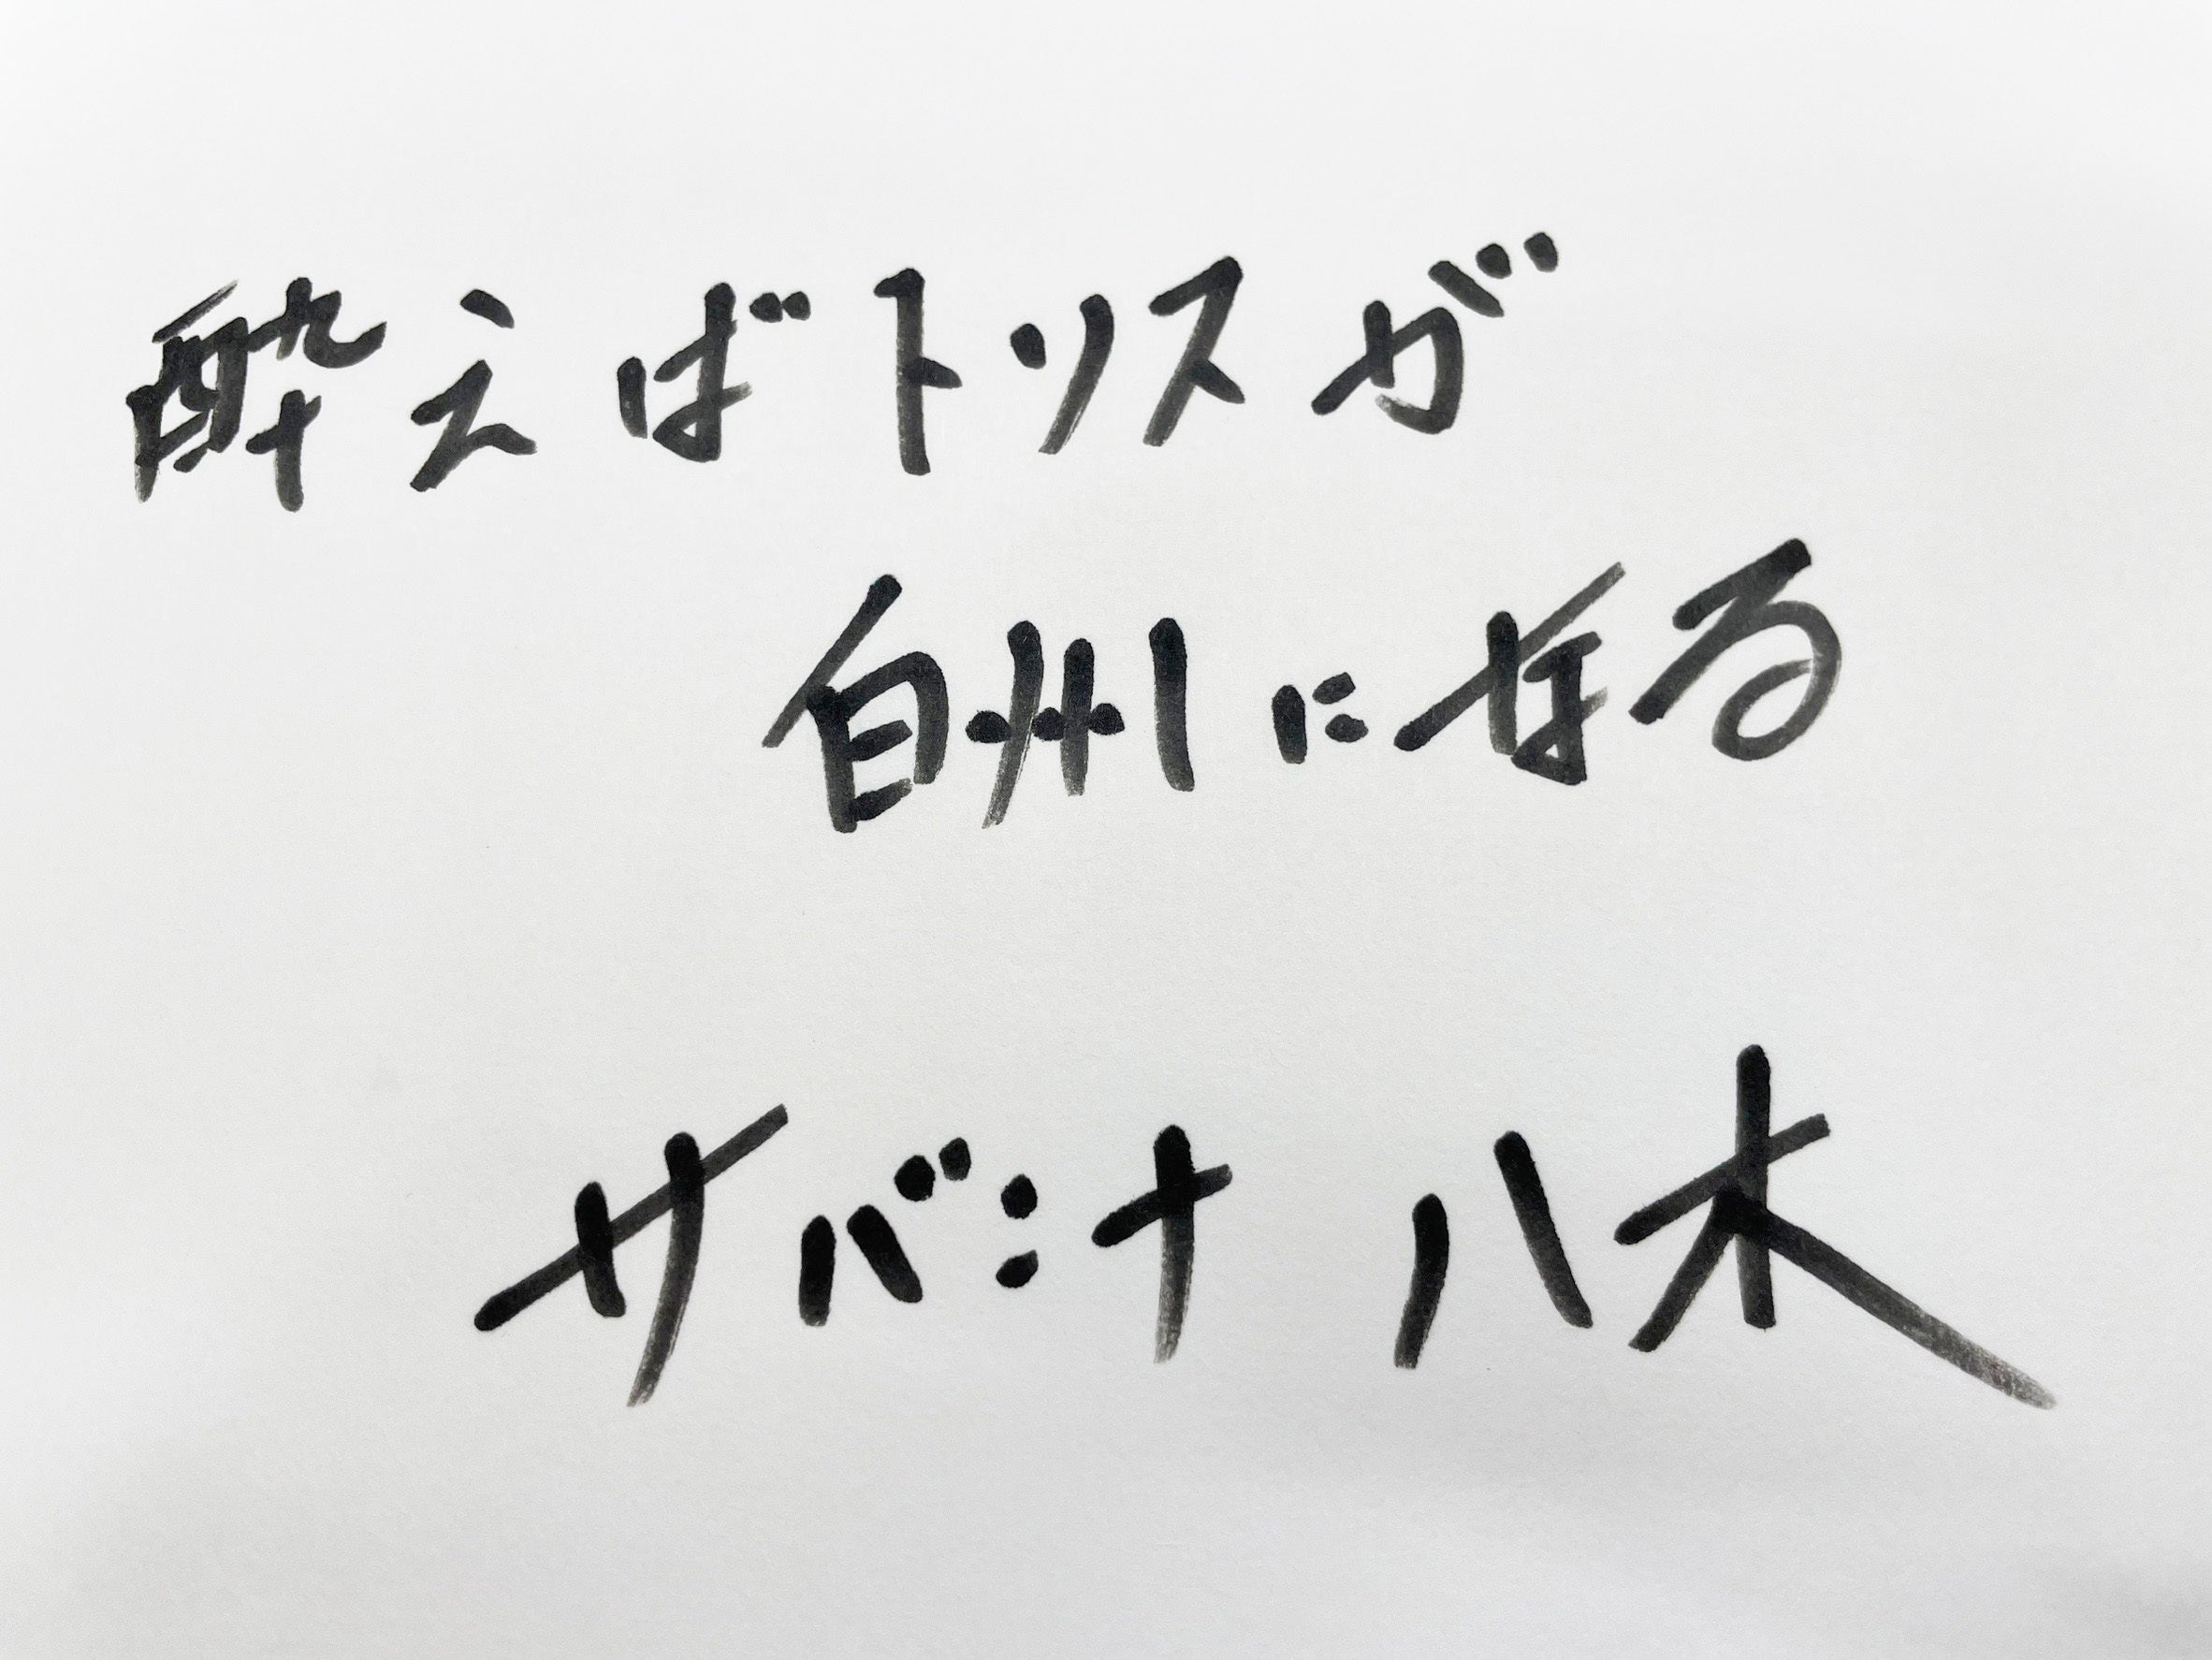 酔えばトリスが
白州になる
サバンナ 八木